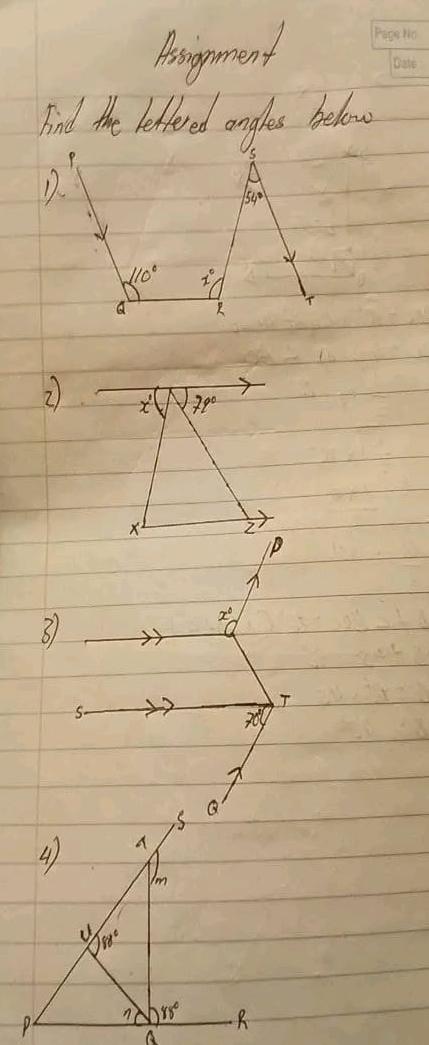 Page No
Date
Assignment
Find the lettered angles below
1)
P
S
54°
110°
x°
Q
R
T
2)
x°
79°
X
Z
P
3)
x°
S
T
70°
Q
4)
S
T
m
U
88°
n
88°
P
Q
R